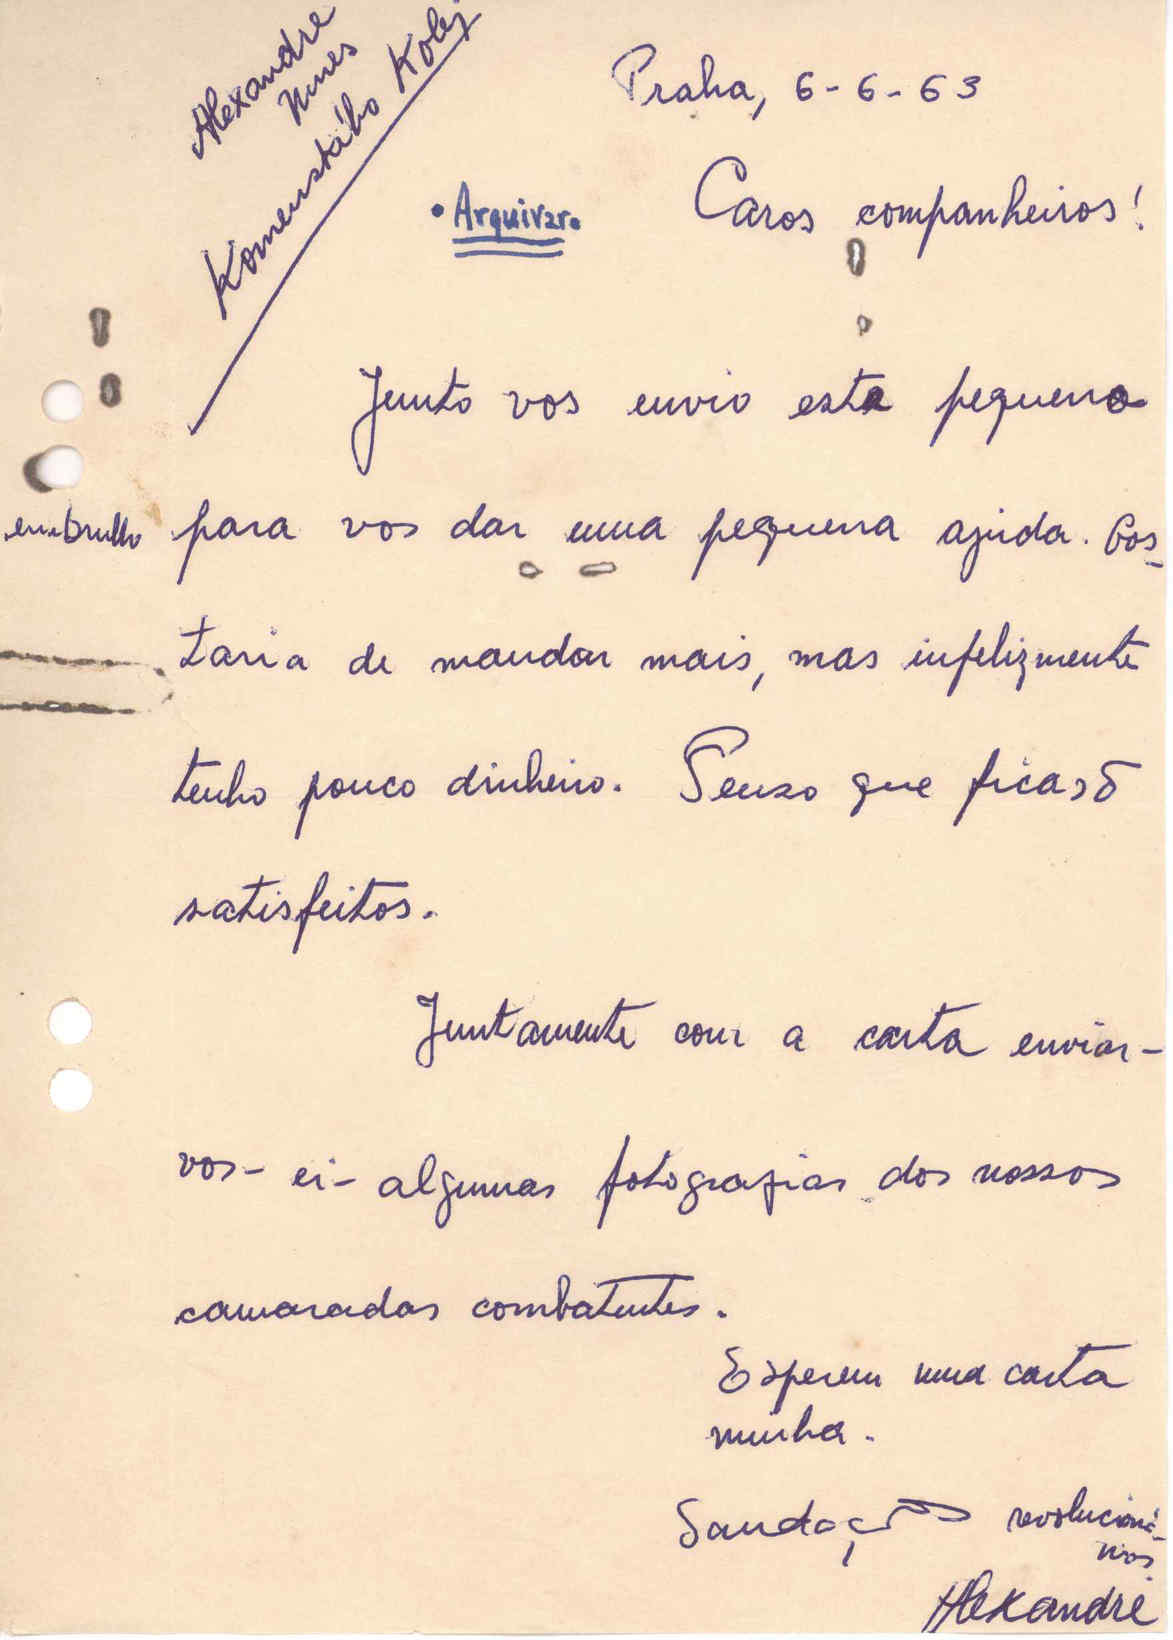 Alexandre
Nunes
Komenského Kolej
Praha, 6-6-63
• Arquivar.
Caros companheiros!
Junto vos envio esta pequeno
embrulho para vos dar uma pequena ajuda. Gos-
taria de mandar mais, mas infelizmente
tenho pouco dinheiro. Penso que ficarõ
satisfeitos.
Juntamente com a carta enviar-
vos-ei- algumas fotografias dos nossos
camaradas combatentes.
Esperem uma carta
minha.
Saudações revolucioná-
rias.
Alexandre